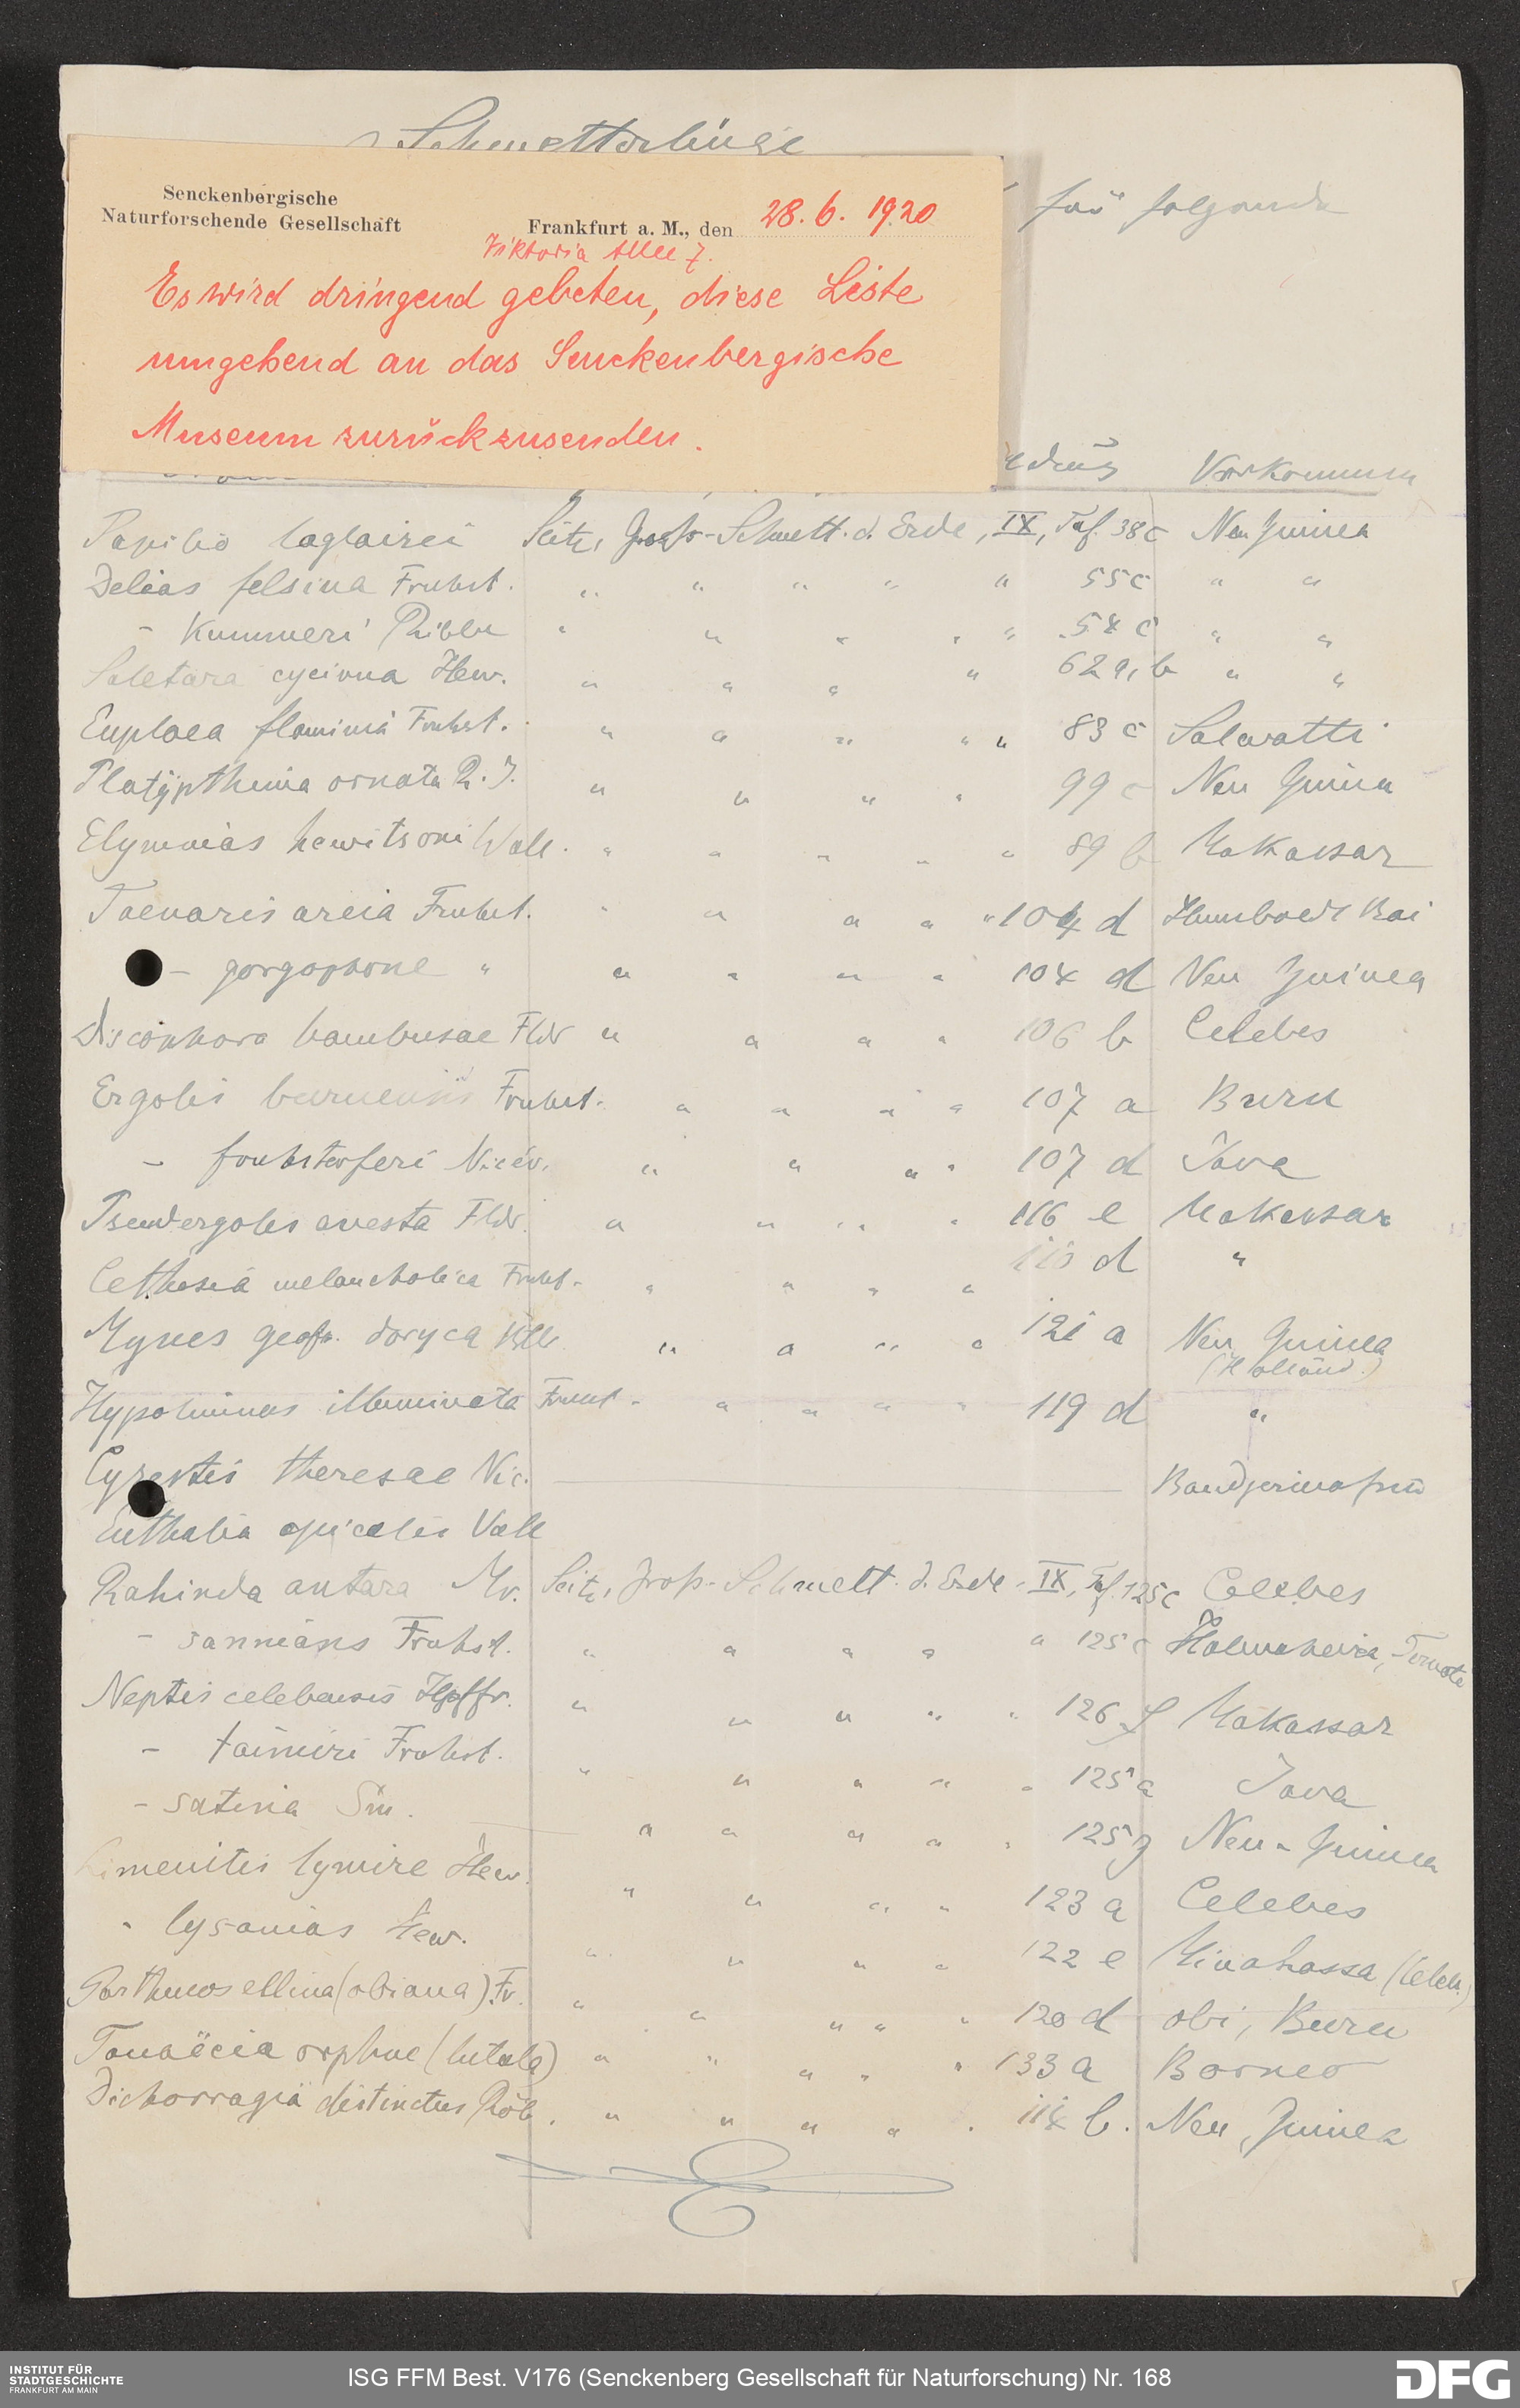 Schmetterlinge
für folgende
Senckenbergische
Naturforschende Gesellschaft
Frankfurt a. M., den 28. 6. 1920
Viktoria Allee 7.
Es wird dringend gebeten, diese Liste
umgehend an das Senckenbergische
Museum zurückzusenden.
Vorkommen
Papilio laglaizei Seitz, Gross-Schmett. d. Erde, IX, Taf. 38 c Neu Guinea
Delias felsina Fruhst. " " " " " 55 c " "
- Kummeri Ribbe " " " " " 54 c " "
Saletara cycinna Hew. " " " " 62 a, b " "
Euploea flaminia Fruhst. " " " " " 83 c Salwatti
Platypthima ornata R. J. " " " " 99 c Neu Guinea
Elymnias hewitsoni Wall. " " " " " 89 b Makassar
Taenaris areia Fruhst. " " " " " 104 d Humboldt Bai
- gorgophone " " " " " 104 d Neu Guinea
Discophora bambusae Fldr " " " " 106 b Celebes
Ergolis buruensis Fruhst. " " " " 107 a Buru
- fruhstorferi Nicév. " " " " 107 d Java
Pseudergolis avesta Fldr. " " " " 116 e Makassar
Cethosia melancholica Fruhst. " " " " d "
Mynes geofr. doryca " " " " 121 a Neu Guinea
(Holländ.)
Hypolimnas illuminata Fruhst. " " " " 119 d "
Cyrestis theresae Nic. Bandjermasin
Euthalia apicalis Voll
Rahinda antara Mr. Seitz, Gross-Schmett. d. Erde, IX, Taf. 125 c Celebes
- sannians Fruhst. " " " " " 125 c Halmaheira, Ternate
Neptis celebensis Hpffr. " " " " " 126 f Makassar
- taimiri Fruhst. " " " " " 125 a Java
- satina Sm. " " " " " 125 g Neu-Guinea
Limenitis lymire Hew. " " " " 123 a Celebes
" lysanias Hew. " " " " 122 e Minahassa (Celeb.)
Parthenos ellina (obiana) Fr. " " " " " 120 d obi, Buru
Tanaëcia orphne (lutala) " " " " " 133 a Borneo
Dichorragia distinctus Röb. " " " " " 114 b. Neu Guinea
INSTITUT FÜR
STADTGESCHICHTE
FRANKFURT AM MAIN
ISG FFM Best. V176 (Senckenberg Gesellschaft für Naturforschung) Nr. 168
DFG